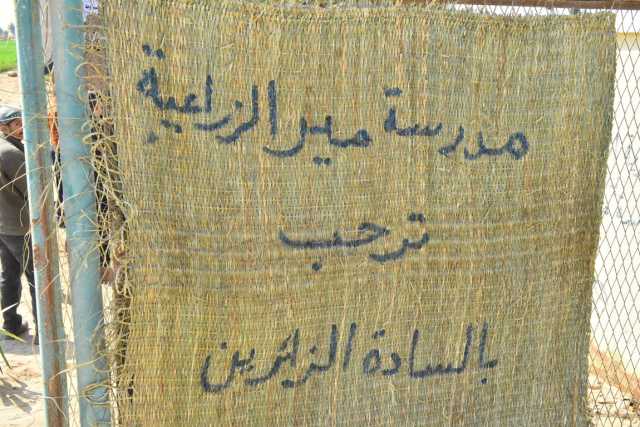 مدرسة مير الزراعية
ترحب
بالسادة الزائرين